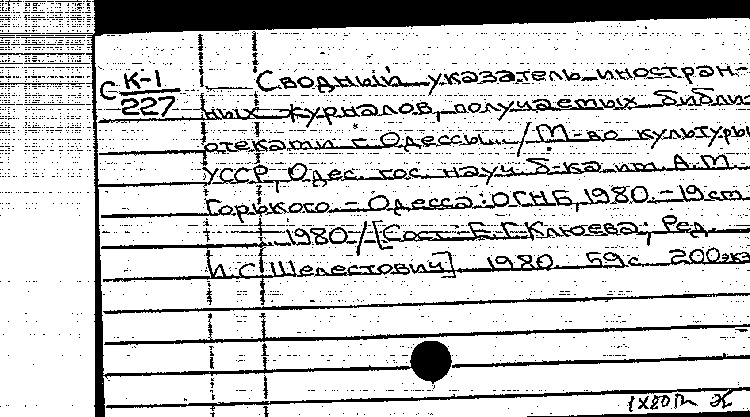 С К-1
227
Сводный указатель иностран-
ных журналов, получаемых библи
отеками г. Одессы... / М-во культуры
УССР, Одес. гос. науч. б-ка им. А.М.
Горького. - Одесса: ОГНБ, 1980. - 19 см
... 1980 / [Сост. Б.Г. Клюева; Ред.
И.С. Шелестович]. 1980. 59 с. 200 экз